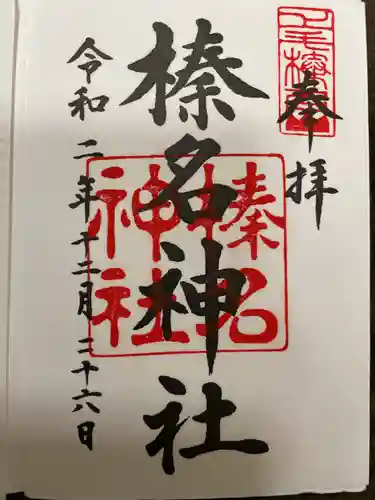 奉拝
榛名神社
榛名神社
令和二年十二月二十六日